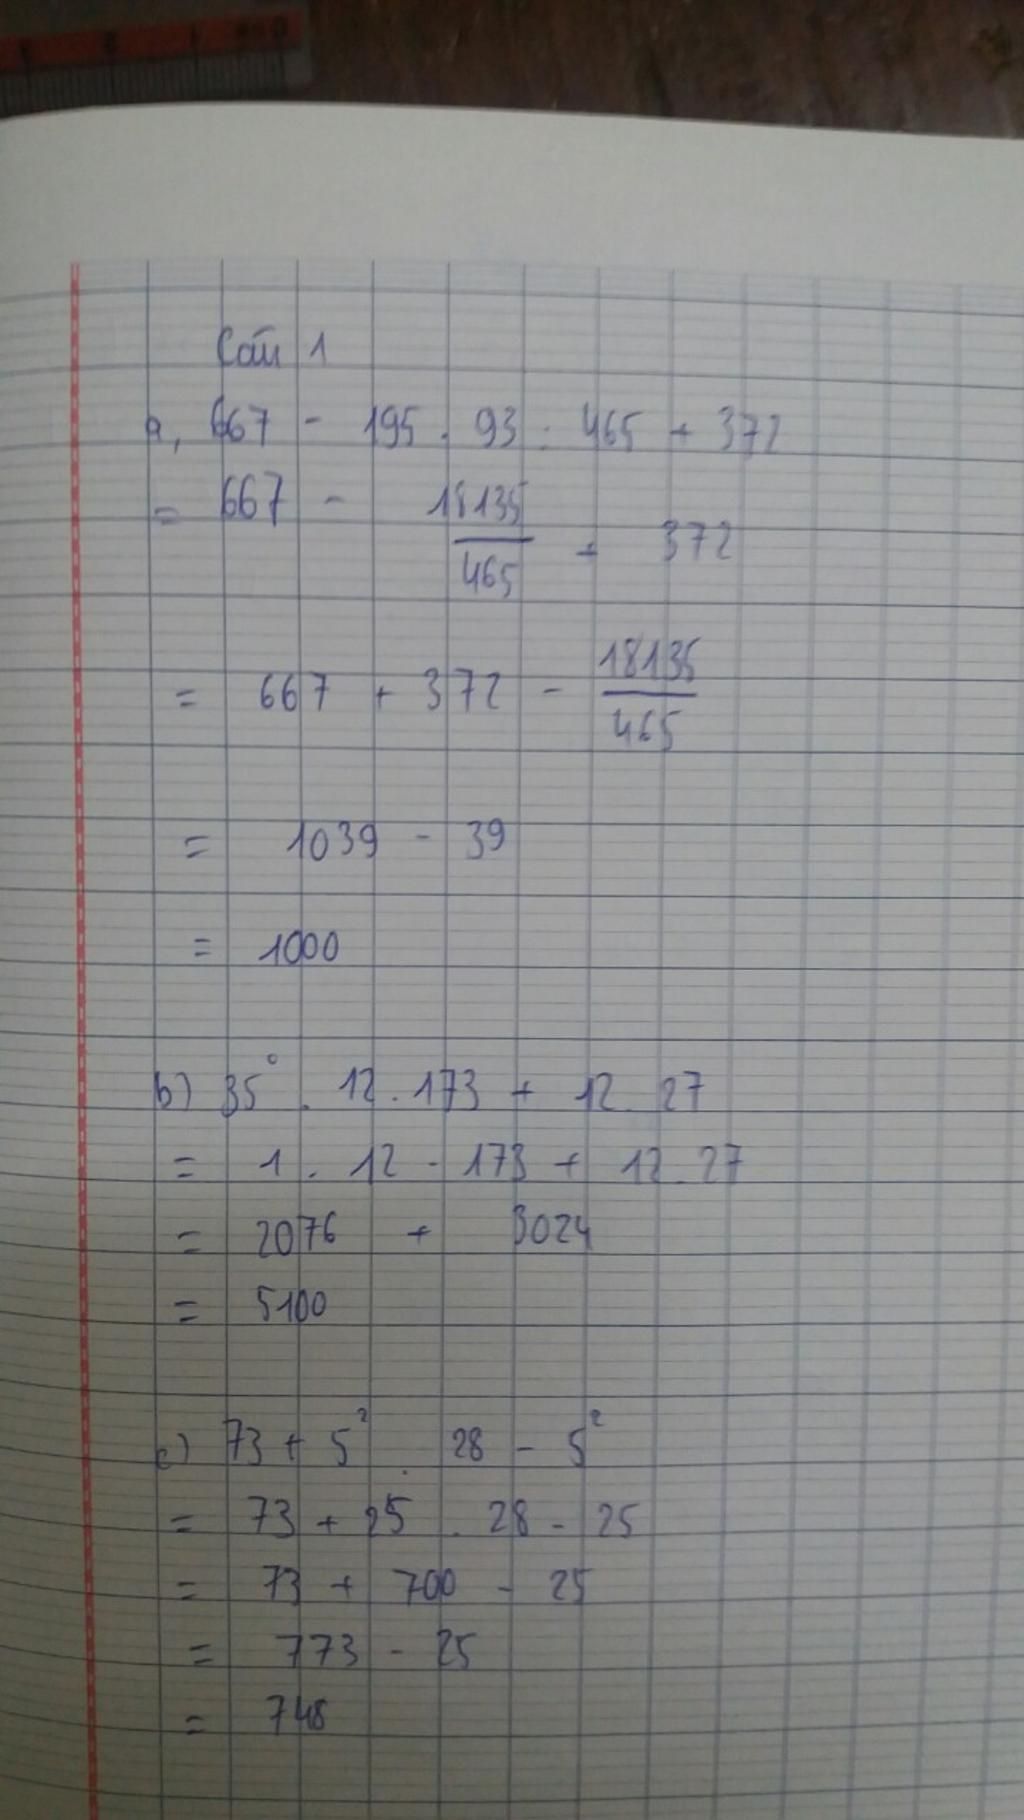 Câu 1
a, 667 - 195 . 93 : 465 + 372
= 667 - 18135/465 + 372
= 667 + 372 - 18135/465
= 1039 - 39
= 1000
b) 35° . 12 . 173 + 12 . 27
= 1 . 12 . 173 + 12 . 27
= 2076 + 3024
= 5100
c) 73 + 5² . 28 - 5²
= 73 + 25 . 28 - 25
= 73 + 700 - 25
= 773 - 25
= 748